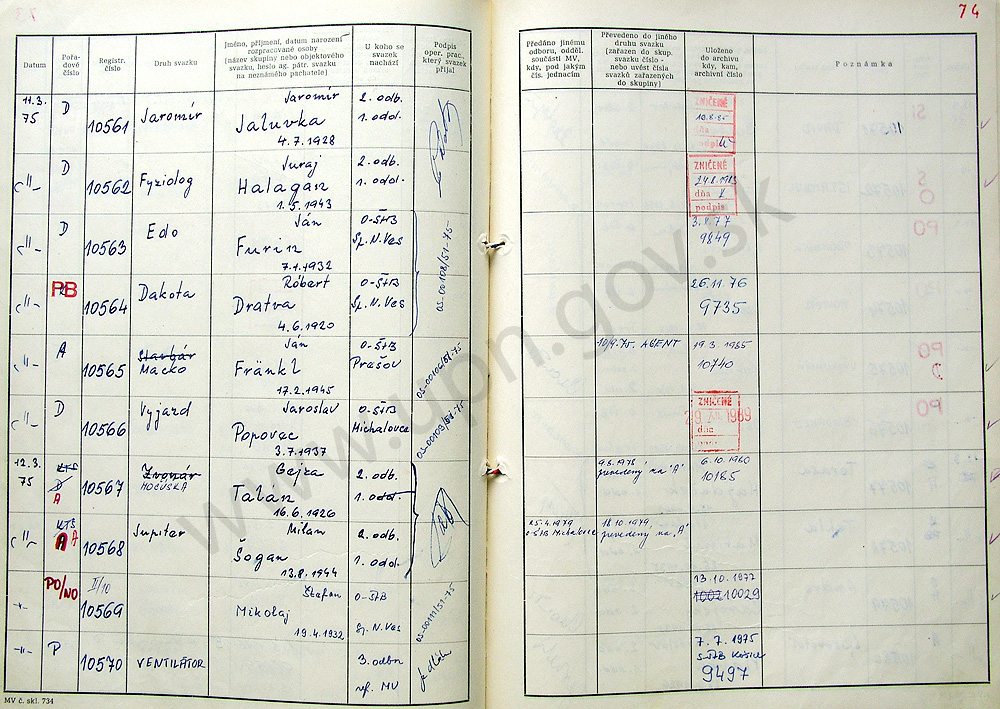 74
Datum
Pořa-
dové
číslo
Registr.
číslo
Druh svazku
Jméno, příjmení, datum narození
rozpracované osoby
(název skupiny nebo objektového
svazku, heslo ag. pátr. svazku
na neznámého pachatele)
U koho se
svazek
nachází
Podpis
oper. prac.
který svazek
přijal
Předáno jinému
odboru, odděl.
součásti MV,
kdy, pod jakým
čís. jednacím
Převedeno do jiného
druhu svazku
(zařazen do skup.
svazku číslo -
nebo uvést čísla
svazků zařazených
do skupiny)
Uloženo
do archivu
kdy, kam,
archivní číslo
Poznámka
11.3.
75
D
10561
Jaromír
Jaromír
Jaluvka
4.7.1928
2. odb.
1. odd.
ZNIČENÉ
10.8.85
dňa
podpis
-II-
D
10562
Fyziolog
Juraj
Halagan
1.5.1943
2. odb.
1. odd.
ZNIČENÉ
24.8.1983
dňa
podpis
-II-
D
10563
Edo
Ján
Furin
7.1.1932
O-ŠtB
Sp. N. Ves
OS-00108/51-75
3.8.77
9849
-II-
PB
10564
Dakota
Róbert
Dratva
4.6.1920
O-ŠtB
Sp. N. Ves
26.11.76
9735
-II-
A
10565
Stavbár
Macko
Ján
Fränkl
17.2.1945
O-ŠtB
Prešov
10/9.75. AGENT
19.3.1985
10740
-II-
D
10566
Vyjazd
Jaroslav
Popovec
3.7.1937
O-ŠtB
Michalovce
OS-00109/51-75
ZNIČENÉ
29. XII. 1989
12.3.
75
KTS
D
A
10567
Zvonár
HOCUSKA
Gejza
Talan
16.6.1926
2. odb.
1. odd.
prevedený na "A"
6.10.1980
10185
-II-
KTS
A A
10568
Jupiter
Milan
Šogan
13.8.1944
2. odb.
1. odd.
25.4.1979
O-ŠtB Michalovce
18.10.1979,
prevedený na "A"
PO/NO
II/10
10569
Štefan
Mikolaj
19.4.1932
O-ŠtB
Sp. N. Ves
OS-00111/51-75
13.10.1977
1002 10029
-II-
P
10570
VENTILÁTOR
3. odbor
ref. MV
7.7.1975
S-ŠtB Košice
9497
MV č. skl. 734
www.upn.gov.sk